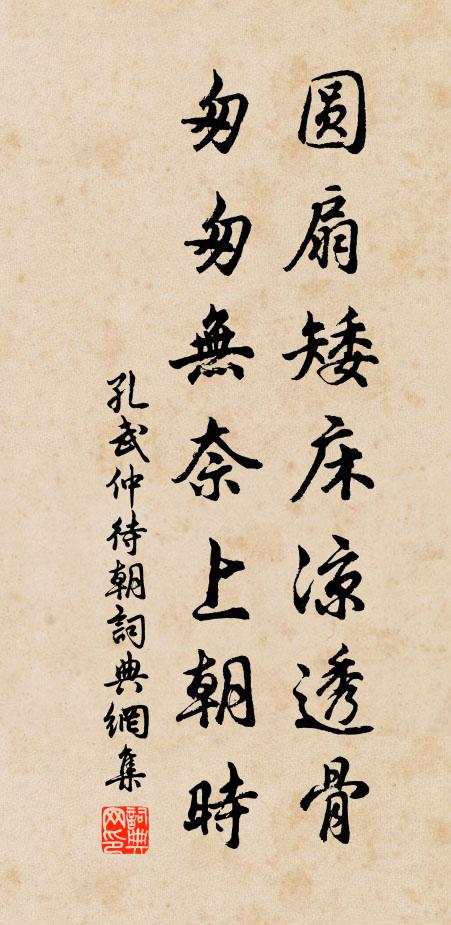 圆扇矮床凉透骨
匆匆無奈上朝時
孔武仲待朝詞典網集
詞典网印